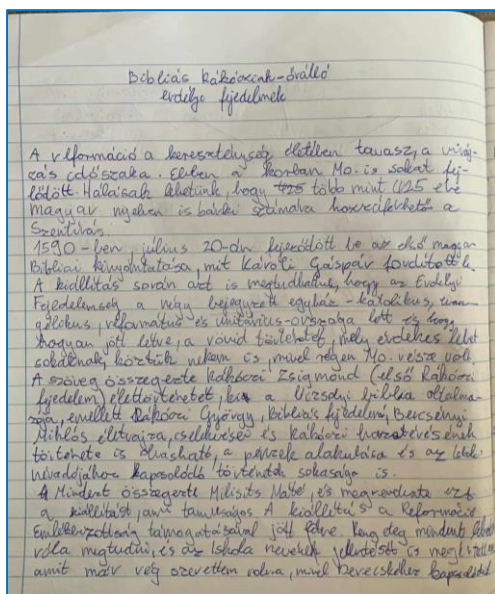 Bibliás Rákócziak - őrálló
erdélyi fejedelmek
A reformáció a kereszténység életében tavasz, a virág-
zás időszaka. Ebben a korban Mo. is sokat fej-
lődött. Hálásak lehetünk, hogy 425 több mint 425 éve
magyar nyelven is bárki számára hozzáférhető a
Szentírás.
1590-ben július 20-án fejeződött be az első magyar
Bibliai kinyomtatása, mit Károli Gáspár fordított le.
A kiállítás során azt is megtudhattuk, hogy az Erdélyi
Fejedelemség a négy bejegyzett egyház - katolikus, evan
gélikus, református és unitárius - országa lett és hogy
hogyan jött létre, a rövid történetét, mely érdekes lehet
sokaknak, köztük nekem is, mivel régen Mo. része volt.
A szöveg összegezte Rákóczi Zsigmond (első Rákóczi
fejedelem) élettörténetét, ki a vizsolyi biblia oltalma-
zója, emellett Rákóczi György, Bibliás fejedelem, Bercsényi
Miklós életrajza, cselekvései és Rákóczi hazatérésének
története is olvasható, a pénzek alakulása és az iskola
névadójához kapcsolódó történetek sokasága is.
Mindent összegezte Milisits Máté, és megrendezte ezt
a kiállítást, ami tanulságos. A kiállítás a Reformáció
Emlékbizottság támogatásával jött létre. Rengeteg mindent lehet
róla megtudni, és az iskola nevének jelentését is
amit már rég szerettem volna, mivel